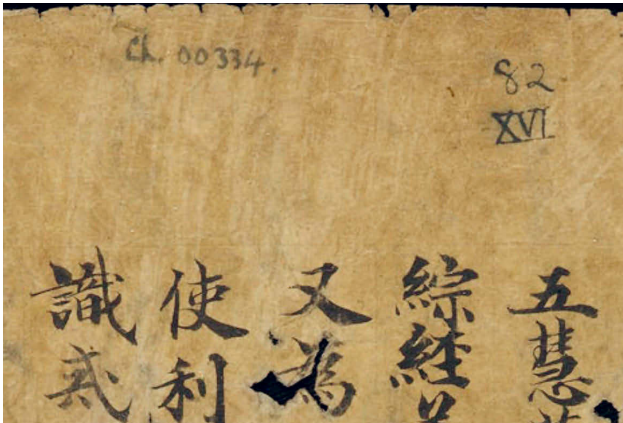 Ch. 00334.
82
XVI
五慧
綜經
又為
使利
識惑